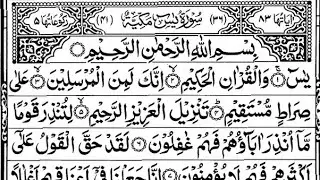 اٰیَاتُهَا ٨٣ (٣٦) سُوْرَةُ یٰسٓ مَكِّيَّةٌ (٤١) رُكُوْعَاتُهَا ٥
بِسْمِ اللّٰهِ الرَّحْمٰنِ الرَّحِيْمِ
یٰسٓ ۝١ وَالْقُرْاٰنِ الْحَكِيْمِ ۝٢ اِنَّكَ لَمِنَ الْمُرْسَلِيْنَ ۝٣ عَلٰى
صِرَاطٍ مُّسْتَقِيْمٍ ۝٤ تَنْزِيْلَ الْعَزِيْزِ الرَّحِيْمِ ۝٥ لِتُنْذِرَ قَوْمًا
مَّاۤ اُنْذِرَ اٰبَآؤُهُمْ فَهُمْ غٰفِلُوْنَ ۝٦ لَقَدْ حَقَّ الْقَوْلُ عَلٰۤى
اَكْثَرِهِمْ فَهُمْ لَا يُؤْمِنُوْنَ ۝٧ اِنَّا جَعَلْنَا فِيْۤ اَعْنَاقِهِمْ اَغْلٰلًا